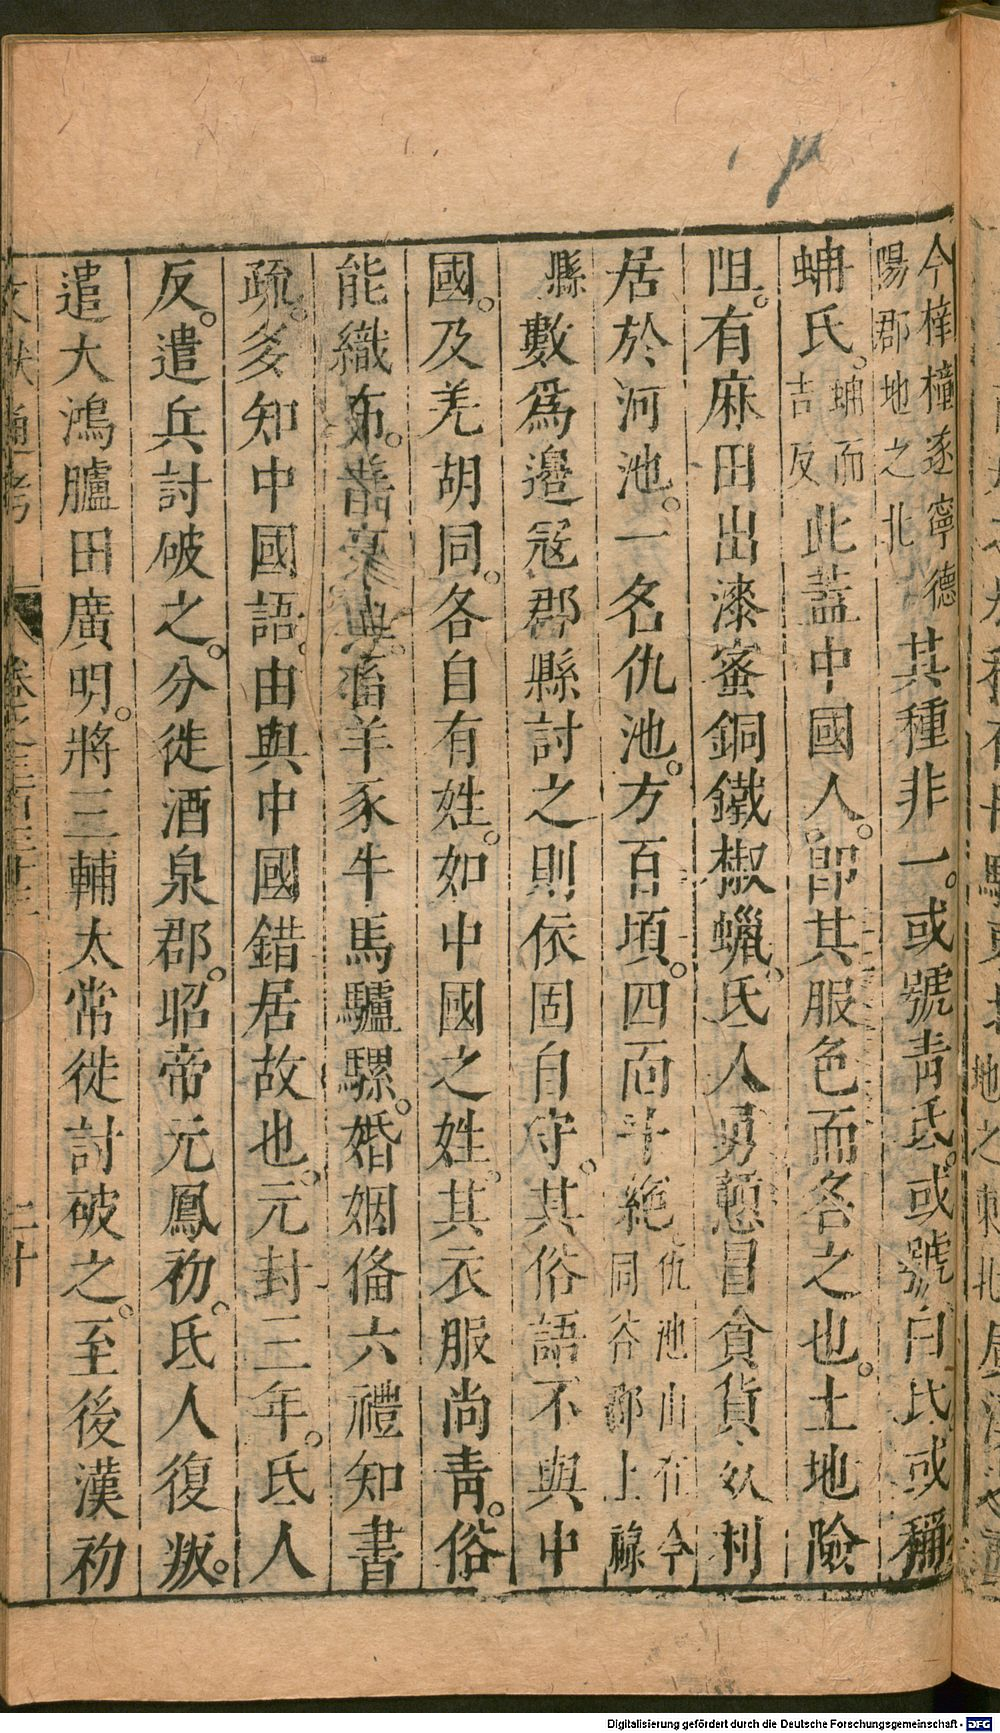 今梓橦遂寧德陽郡地之北其種非一。或號青氐。或號白氐。或稱
蚺氐。蚺而吉反此蓋中國人。卽其服色而各之也。土地險
阻。有麻田出漆蜜銅鐵椒蠟。氐人勇戇冒貪貨奴利
居於河池。一名仇池。方百頃。四面斗絕仇池山在今同谷郡上祿
縣數爲邊寇郡縣討之則依固自守。其俗語不與中
國。及羌胡同。各自有姓。如中國之姓。其衣服尚青。俗
能織布。善畜羊豕牛馬驢騾。婚姻俻六禮知書
疏。多知中國語。由與中國錯居故也。元封三年。氐人
反。遣兵討破之。分徙酒泉郡。昭帝元鳳初。氐人復叛。
遣大鴻臚田廣明。將三輔太常徙討破之。至後漢初
文獻通考 卷之三百三十三 二十
Digitalisierung gefördert durch die Deutsche Forschungsgemeinschaft - DFG